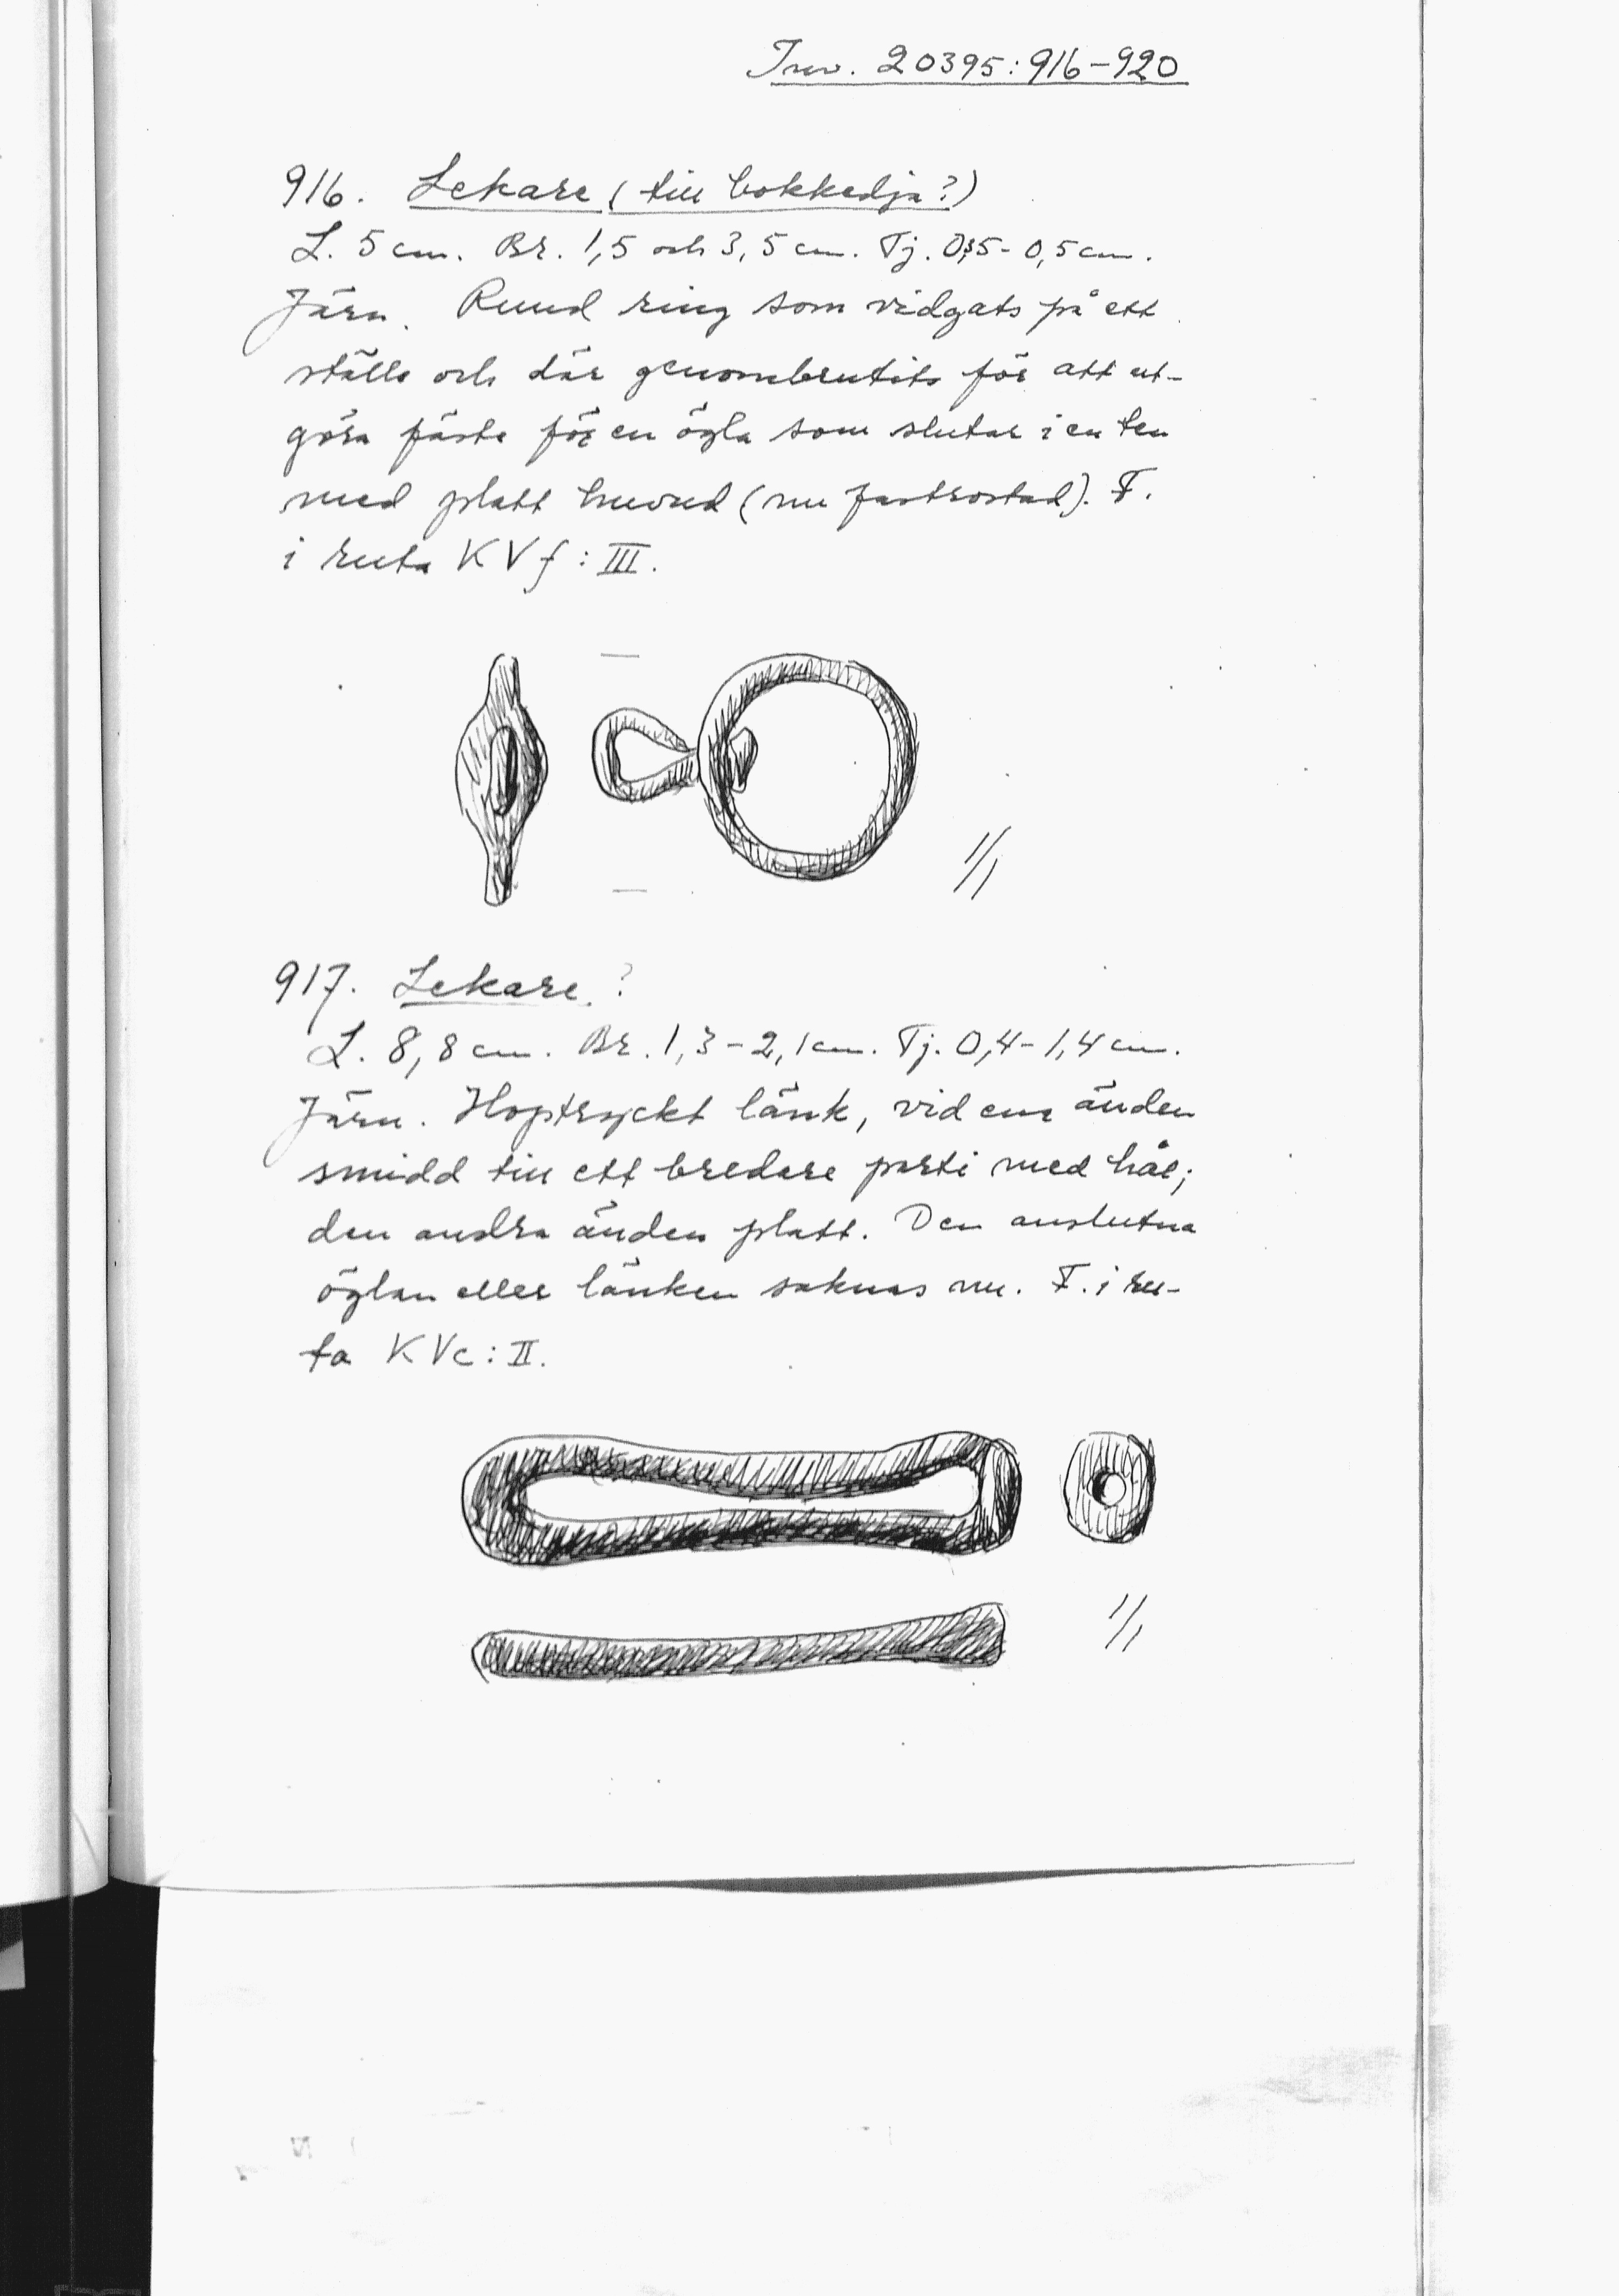 Inv. 20395:916-920
916. Lekare (till bokkedja?)
L. 5 cm. Br. 1,5 och 3,5 cm. Tj. 0,35-0,5 cm.
Järn. Rund ring som vidgats på ett
ställe och där genombrutits för att ut-
göra fäste för en ögla som slutar i en ten
med platt huvud (nu fastrostad). F.
i ruta KVf: III.
1/1
917. Lekare ?
L. 8,8 cm. Br. 1,3-2,1 cm. Tj. 0,4-1,4 cm.
Järn. Hoptryckt länk, vid ena änden
smidd till ett bredare parti med hål;
den andra änden platt. Den anslutna
öglan eller länken saknas nu. F. i ru-
ta KVc: II.
1/1